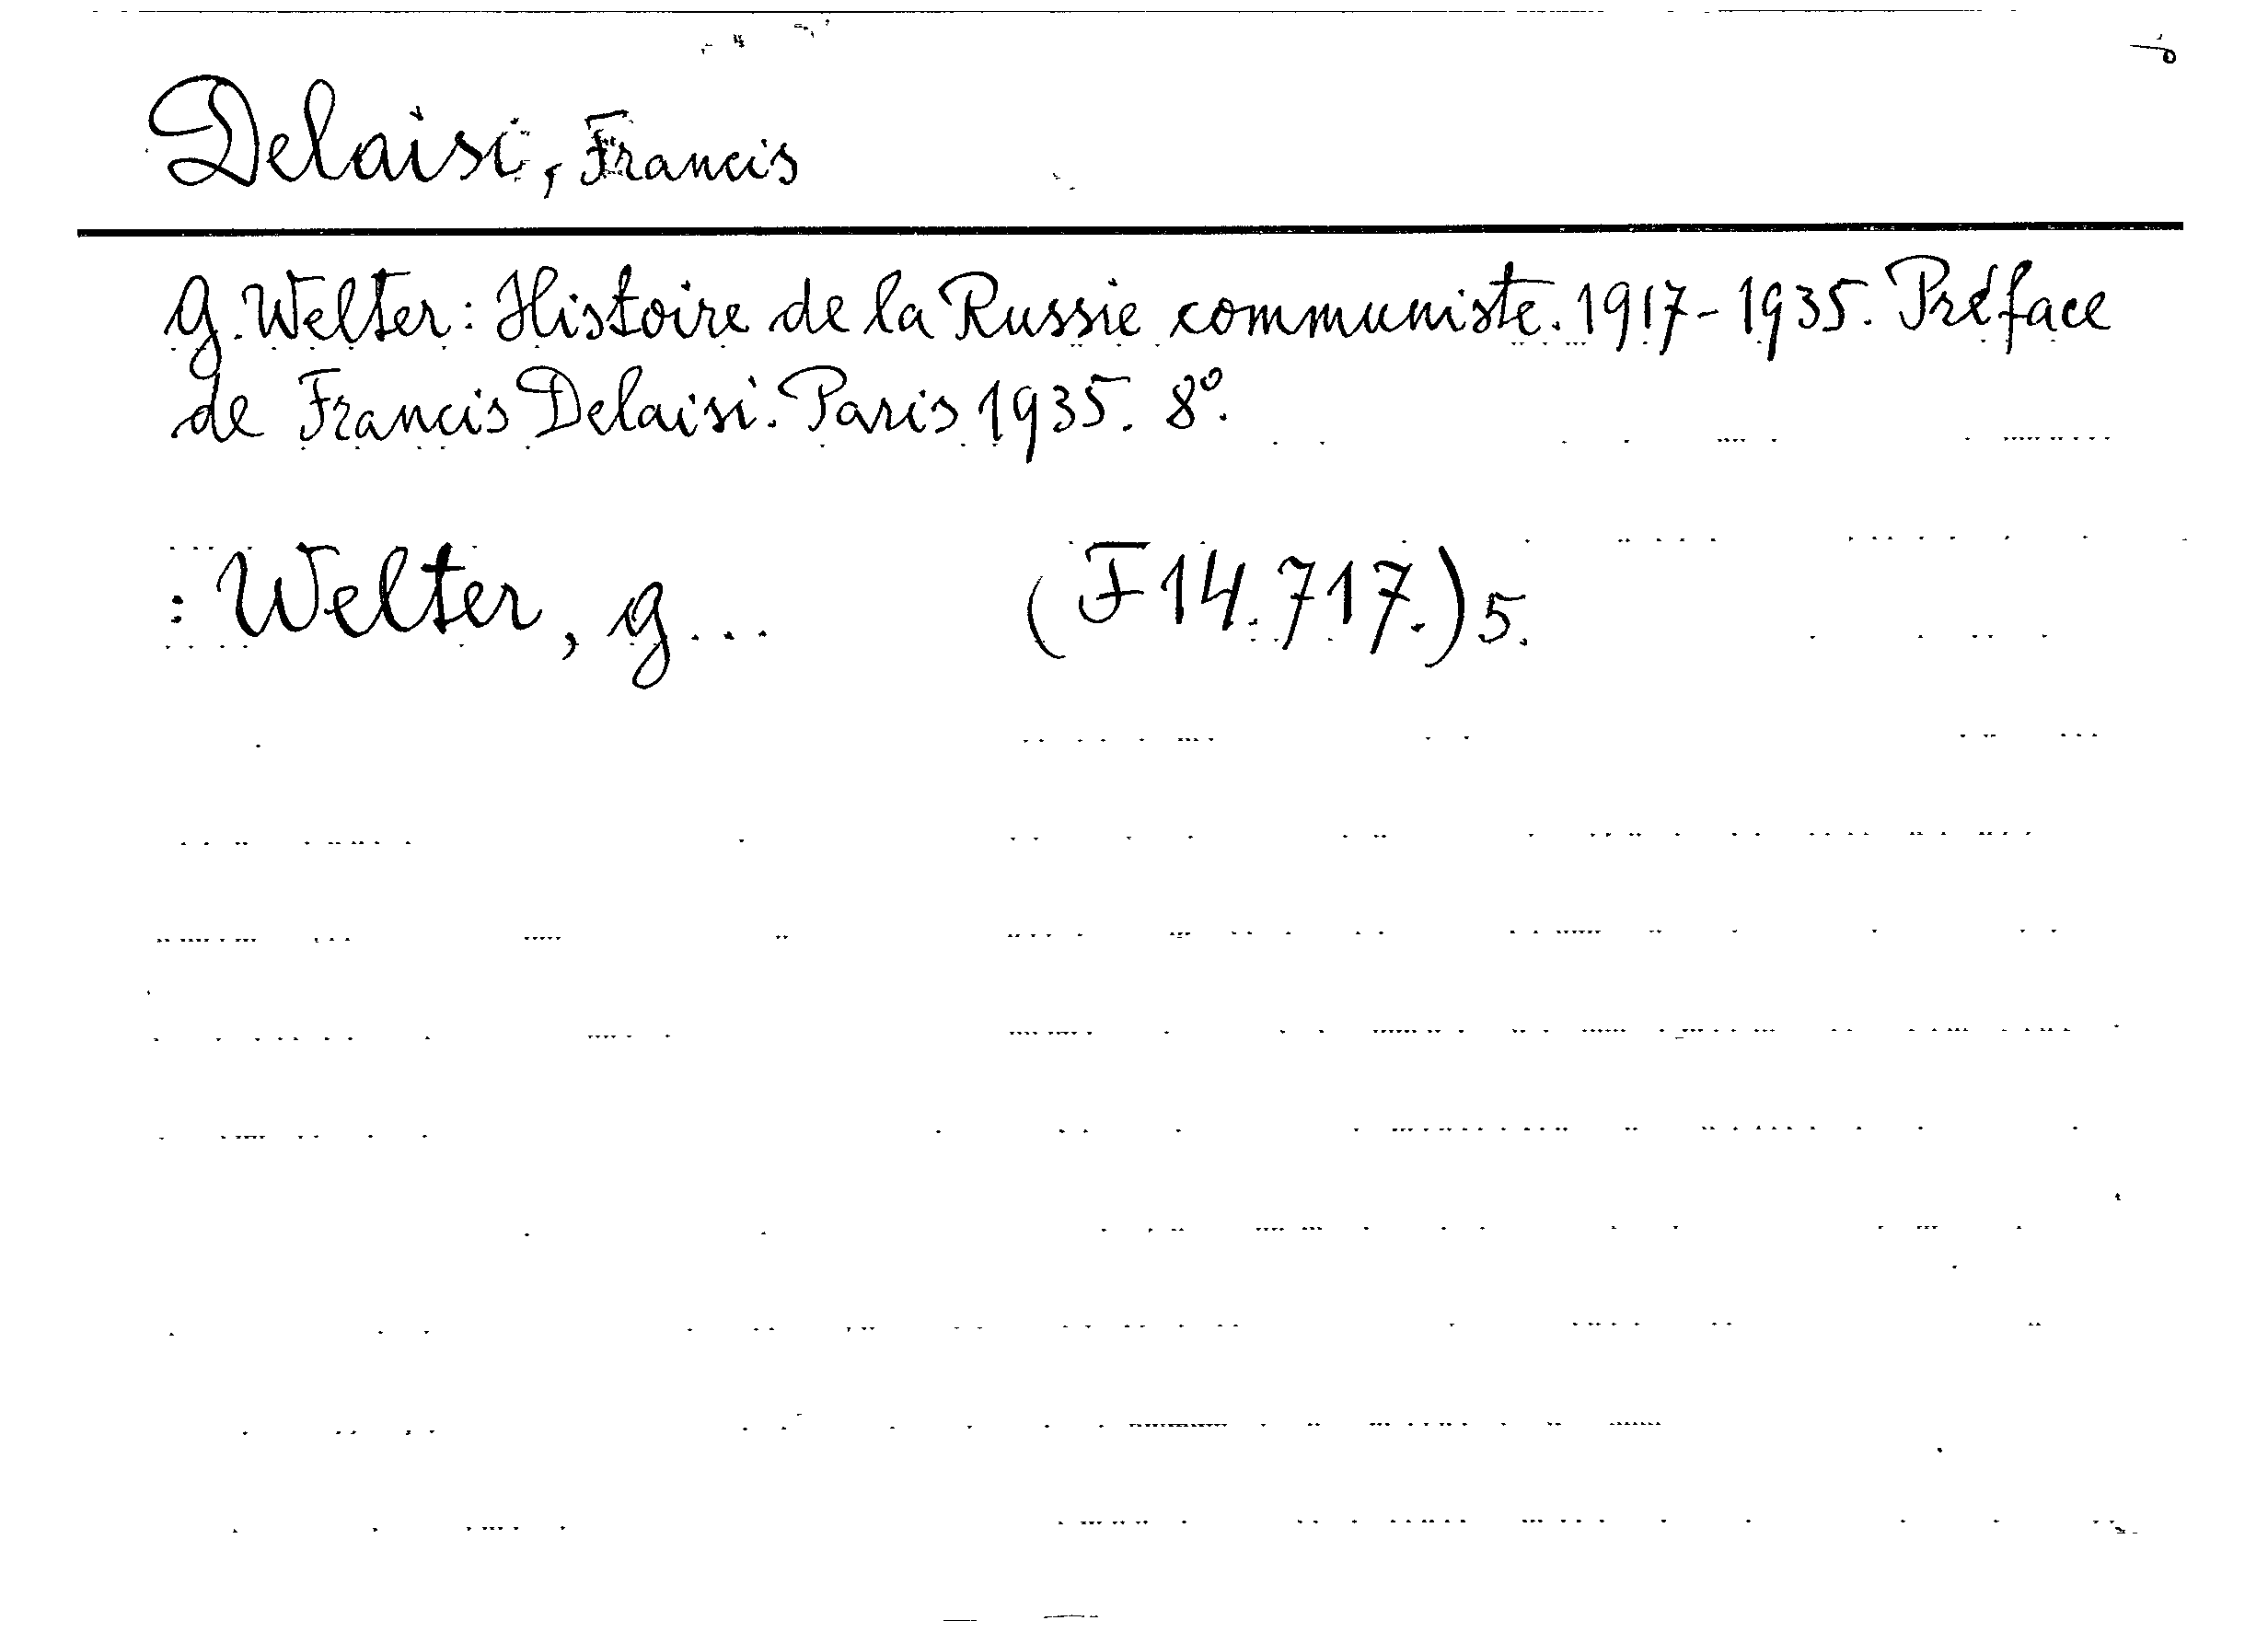 Delaisi, Francis
G. Welter: Histoire de la Russie communiste. 1917-1935. Préface
de Francis Delaisi. Paris 1935. 8°.
: Welter, G... (F 14.717.) 5.